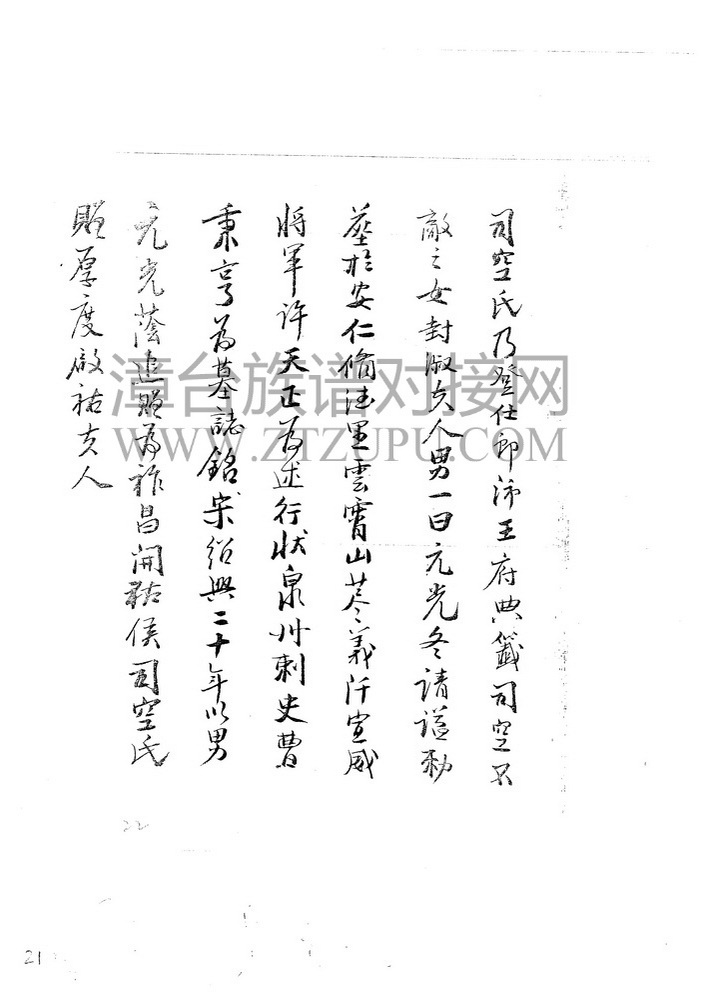 司空氏乃登仕郎沛王府典籤司空不
敵之女封淑夫人男一曰元光冬請謚勅
葬於安仁脩德里雲霄山荃義阡宣威
將軍许天正為述行狀泉州刺史曹
秉亨為墓誌銘宋绍興二十年以男
元光蔭追贈為祚昌開祐侯司空氏
贈厚度啟祐夫人
漳台族谱对接网
WWW.ZTZUPU.COM
22
21